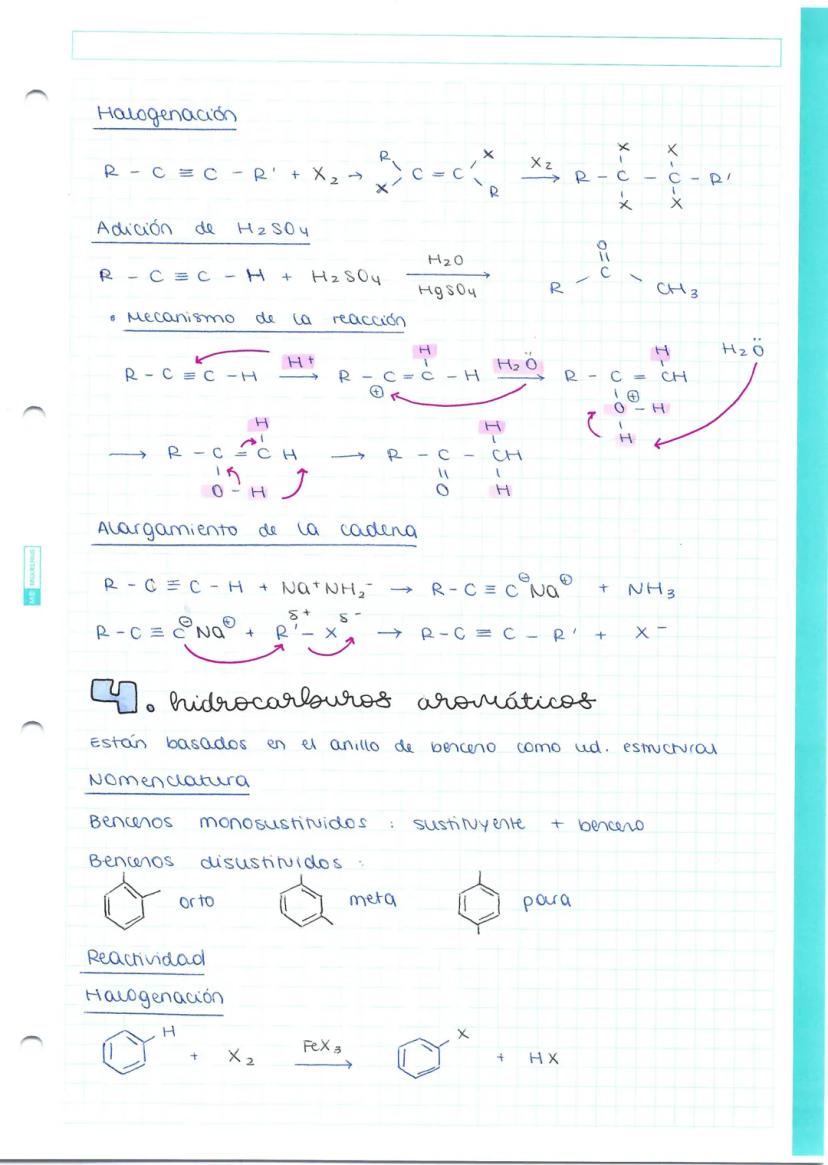 Halogenación
R - C ≡ C - R' + X2 → R X C = C X R X2 → R - C X X - C X X - R'
Adición de H2SO4
R - C ≡ C - H + H2SO4 H2O HgSO4 → R - C O - CH3
• Mecanismo de la reacción
R - C ≡ C - H H+ → R - C ⊕ = C H - H H2Ö → R - C = CH H O ⊕ - H H H2Ö
→ R - C = C H H O - H → R - C - CH H O H
Alargamiento de la cadena
R - C ≡ C - H + Na+NH2- → R - C ≡ C⊖ Na⊕ + NH3
R - C ≡ C⊖ Na⊕ + R' δ+ - X δ- → R - C ≡ C - R' + X-
4. hidrocarburos aromáticos
Están basados en el anillo de benceno como ud. estructural
Nomenclatura
Bencenos monosustituidos : sustituyente + benceno
Bencenos disustituidos :
orto meta para
Reactividad
Halogenación
H + X2 FeX3 → X + HX
MIQUELRIUS